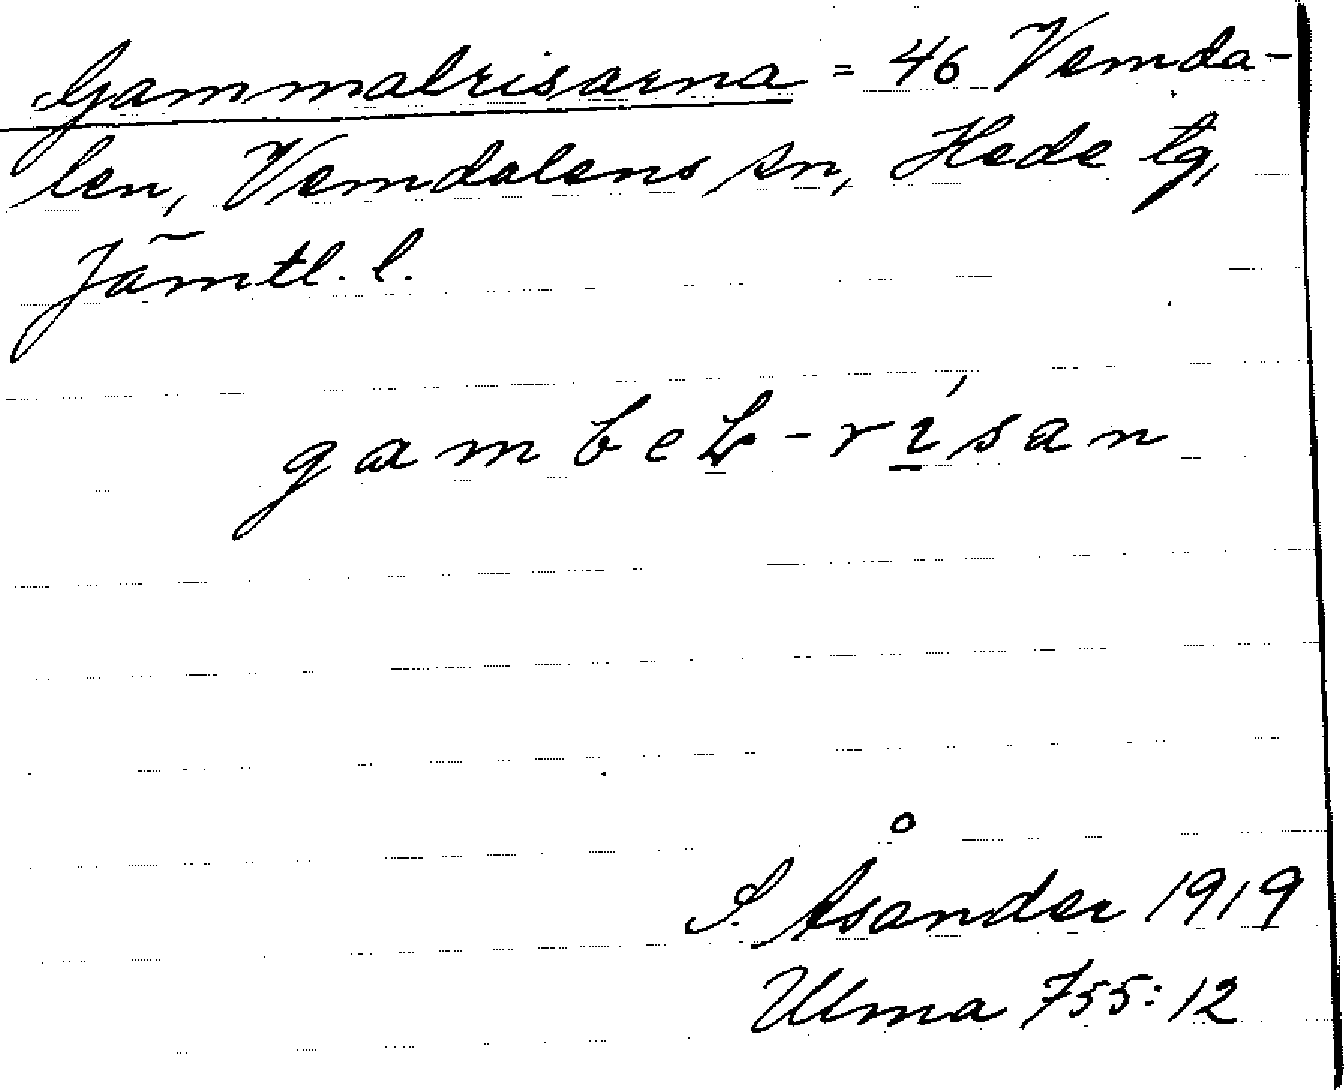 Gammalrisarna = 46 Vemda-
len, Vemdalens sn, Hede tg,
Jämtl. l.
gambeḻ-rí̱san
S. Åsander 1919
Ulma 755:12